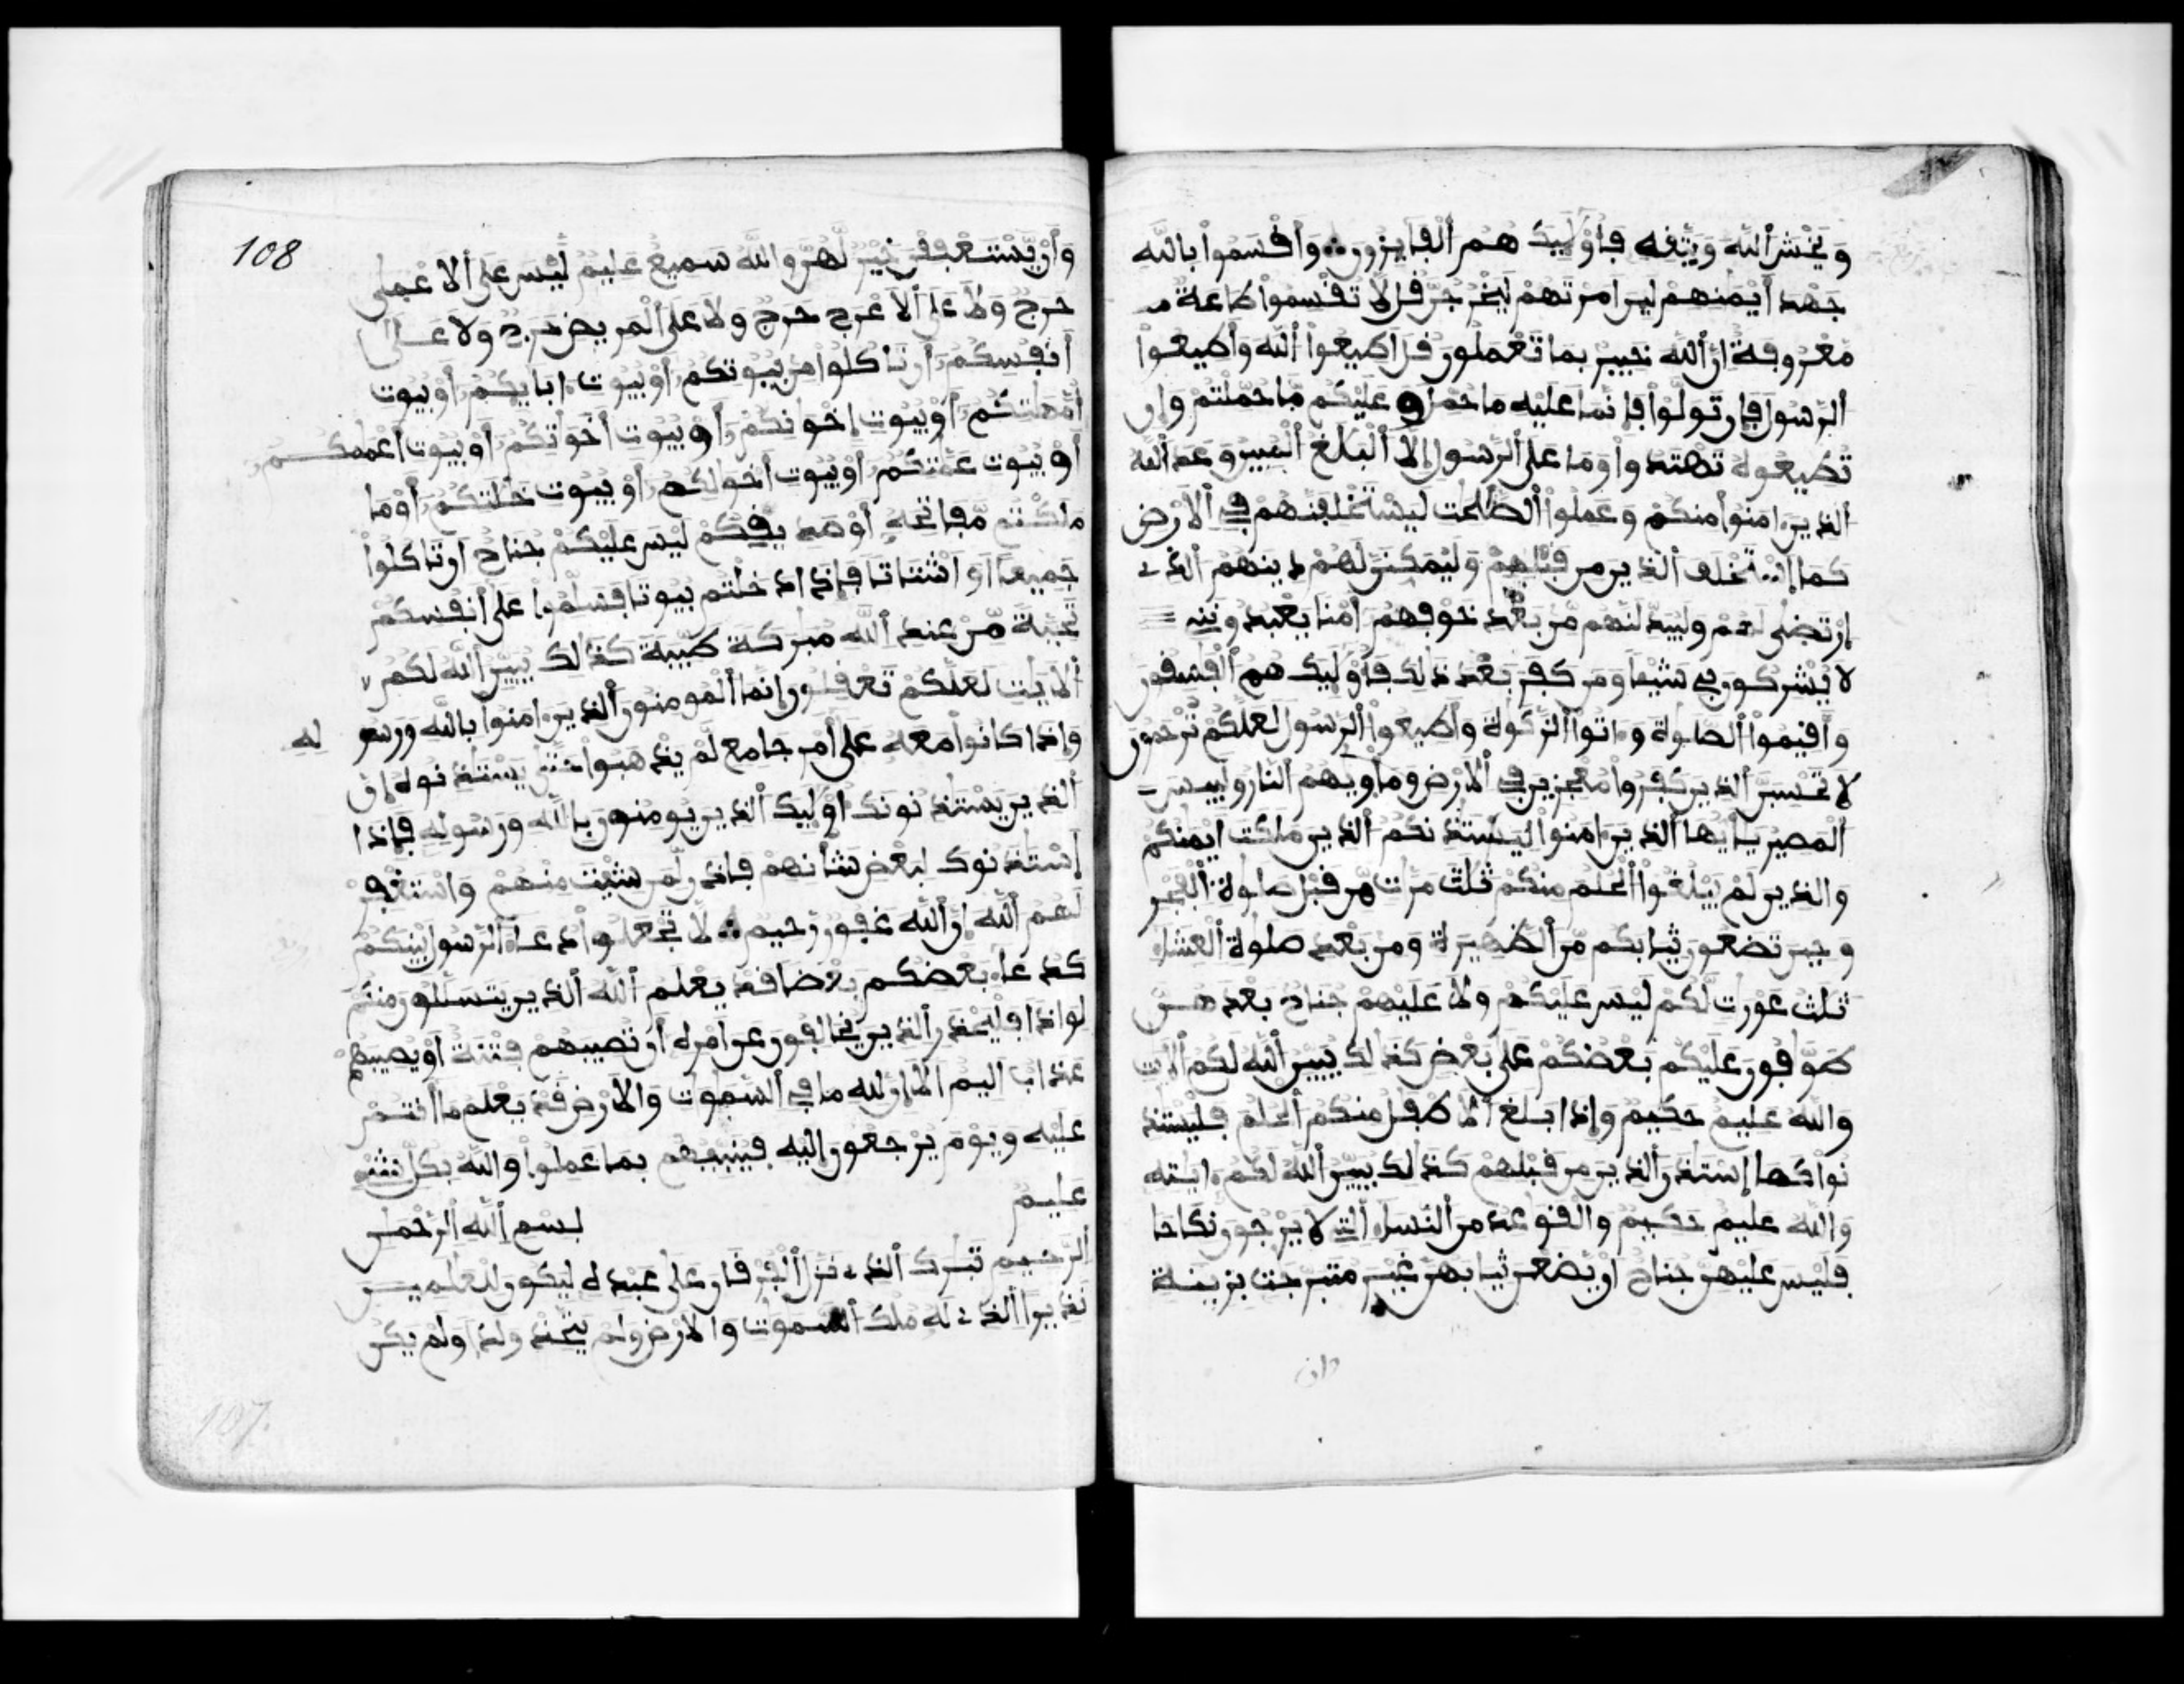 ويخش ألله ويتفه فأوليك هم ألفايزون وافسموا بالله
جهد أيمنهم لين امرتهم ليخرجن فل لا تفسموا طاعة
معروفة ان ألله خبير بما تعملون فل اطيعوا ألله وأطيعوا
ألرسول فإن تولوا فإنما عليه ما حمل وعليكم ما حملتم وإن
تطيعوه تهتدوا وما على ألرسول إلا ألبلغ ألمبين وعد ألله
ألذين ءامنوا منكم وعملوا ألصلحت ليستخلفنهم في ألارض
كما إستخلف ألذين من فبلهم وليمكنن لهم دينهم ألذي
إرتضى لهم وليبدلنهم من بعد خوفهم أمنا يعبدونني
لا يشركون بي شيئا ومن كفر بعد ذلك فأوليك هم ألفسفون
وأفيموا ألصلوة وءاتوا ألزكوة وأطيعوا ألرسول لعلكم ترحمون
لا تحسبن ألذين كفروا معجزين في ألارض ومأويهم ألنار ولبيس
ألمصير يأيها ألذين ءامنوا ليستذنكم ألذين ملكت ايمنكم
والذين لم يبلغوا ألحلم منكم ثلث مرت من فبل صلوة ألفجر
وحين تضعون ثيابكم من ألظهيرة ومن بعد صلوة ألعشاء
ثلث عورت لكم ليس عليكم ولا عليهم جناح بعدهن
طوافون عليكم بعضكم على بعض كذلك يبين ألله لكم ألايت
والله عليم حكيم وإذا بلغ ألاطفل منكم ألحلم فليستذ
نوا كما إستذن ألذين من فبلهم كذلك يبين ألله لكم ءايته
والله عليم حكيم والفوعد من ألنساء ألتي لا يرجون نكاحا
فليس عليهن جناح ان يضعن ثيابهن غير متبرجت بزينة
وان
108
وأن يستعففن خير لهن والله سميع عليم ليس على ألاعمى
حرج ولا على ألاعرج حرج ولا على ألمريض حرج ولا على
أنفسكم أن تاكلوا من بيوتكم أو بيوت ءابايكم أو بيوت
أمهتكم أو بيوت إخونكم أو بيوت أخوتكم أو بيوت أعممكم
أو بيوت عمتكم أو بيوت أخولكم أو بيوت خلتكم أو ما
ملكتم مفاتحه أو صديفكم ليس عليكم جناح ان تاكلوا
جميعا أو اشتاتا فإذا دخلتم بيوتا فسلموا على أنفسكم
تحية من عند ألله مبركة طيبة كذلك يبين ألله لكم
ألايت لعلكم تعفلون إنما ألمومنون ألذين ءامنوا بالله ورسو له
وإذا كانوا معه على أمر جامع لم يذهبوا حتى يستذنوه إن
ألذين يستذنونك أوليك ألذين يومنون بالله ورسوله فإذا
إستذنوك لبعض شأنهم فاذن لمن شيت منهم واستغفر
لهم ألله إن ألله غفور رحيم لا تجعلوا دعاء ألرسول بينكم
كدعاء بعضكم بعضا فد يعلم ألله ألذين يتسللون منكم
لواذا فليحذر ألذين يخالفون عن امره أن تصيبهم فتنة او يصيبهم
عذاب اليم ألا إن لله ما في ألسموت والارض فد يعلم ما أنتم
عليه ويوم يرجعون إليه فينبيهم بما عملوا والله بكل شيء
عليم
بسم ألله ألرحمن
ألرحيم تبرك ألذي نزل ألفرفان على عبده ليكون للعلمين
نذيرا ألذي له ملك ألسموت والارض ولم يتخذ ولدا ولم يكن
107.